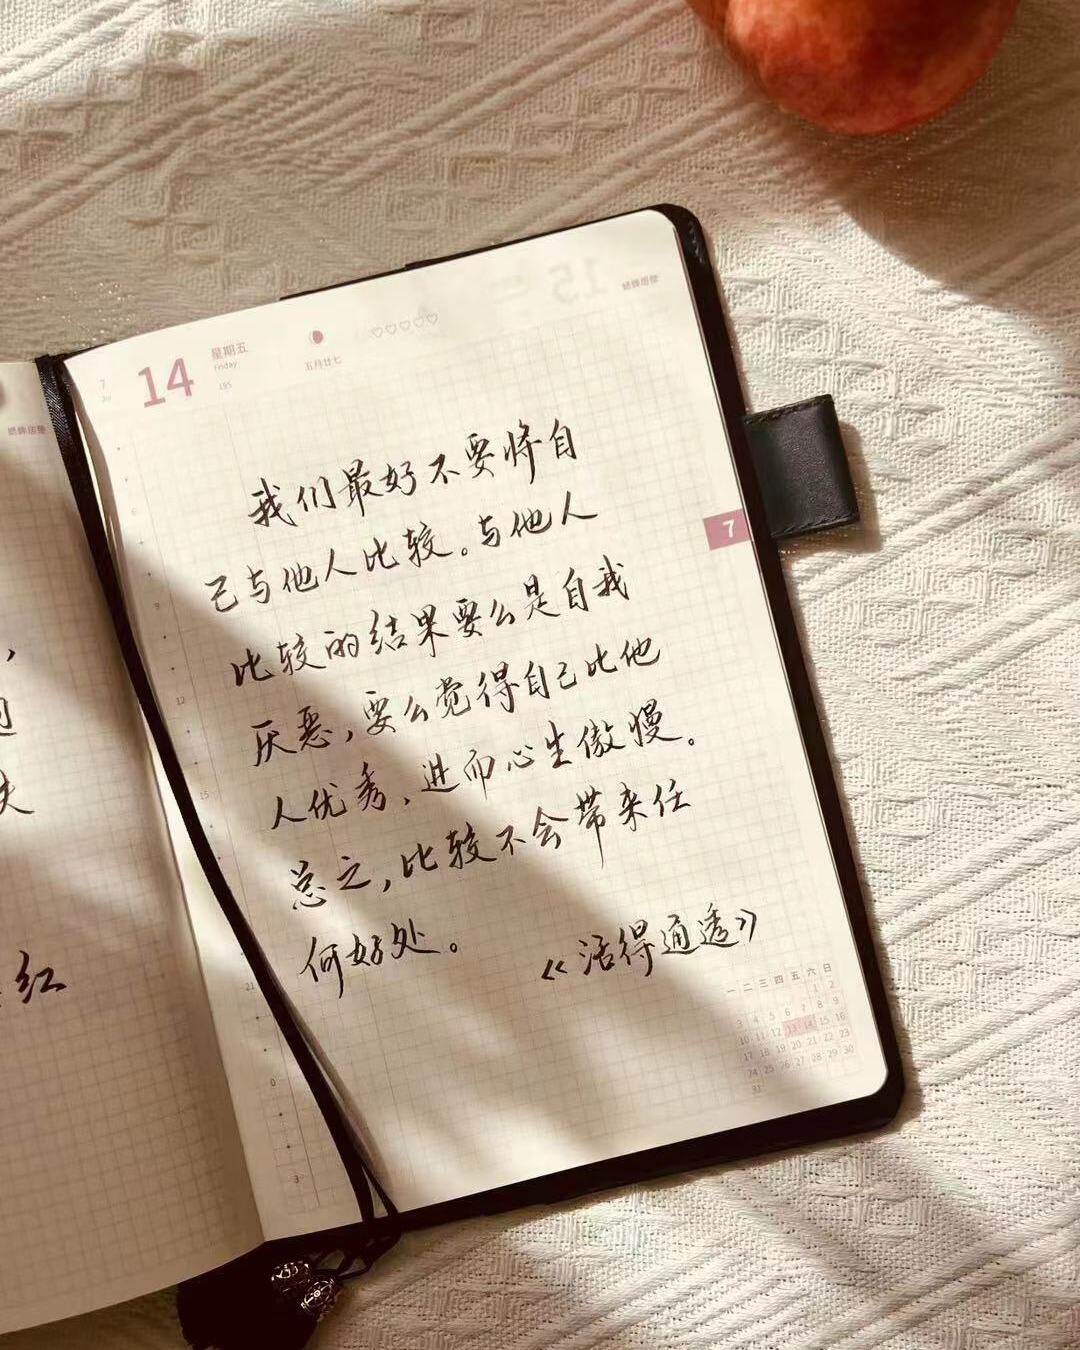 7
14
星期五
Friday
195
五月廿七
♡♡♡♡♡
15
蜻蜂居塾
我们最好不要将自
己与他人比较。与他人
比较的结果要么是自我
厌恶，要么觉得自己比他
人优秀，进而心生傲慢。
总之，比较不会带来任
何好处。
《活得通透》
7
6
9
12
15
21
0
3
一 二 三 四 五 六 日
1 2
3 4 5 6 7 8 9
10 11 12 13 14 15 16
17 18 19 20 21 22 23
24 25 26 27 28 29 30
31
，
夫
红